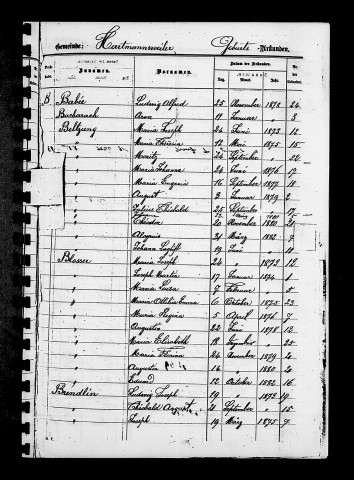 Gemeinde: Hartmannsweiler Geburts-Urkunden.
Zunamen. Vornamen. Datum der Urkunden.
Tag. Monat. Jahr.
B Babée Ludwig Alfred 25 November 1878 24
Bacharach Aron 11 Januar " 3
Beltzung Maria Joseph 24 Juni 1873 12
Maria Theresia 12 Mai 1875 15
" Moritz 24 September " 22
" Maria Johanna 24 Juni 1876 17
" Maria Eugenia 16 September 1877 18
" August 3 Januar 1879 2
" Theobald 25 September " 17
" 20 November 1880 21
" Aloysius 31 März 1882 7
" Johann 19 Juni " 11
Blosser Maria Joseph 24 " 1873 12
" Joseph Martin 17 Januar 1874 1
" Maria Luisa 7 Februar " 5
" Maria Ottilia Emma 6 October 1875 23
" Maria Regina 5 April 1876 7
" Augusta 22 Juni 1878 12
" Maria Elisabeth 18 Dezember " 25
" Maria 24 November 1879 4
" Augusta 16 " 1880 4
" Eduard 12 October 1882 16
Brendlin Ludwig Joseph 19 " 1873 19
" Theobald August 4 September " 15
" Joseph 19 März 1875 7